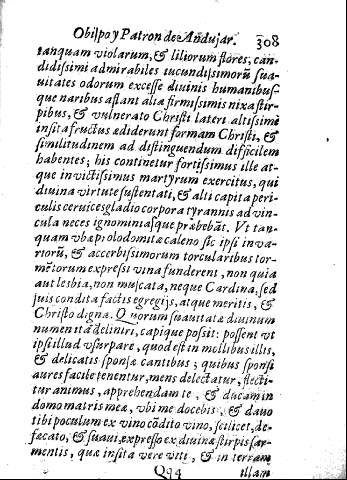 Obispo y Patron de Andujar. 308
tanquam violarum, & liliorum flores, can-
didissimi admirabiles iucundissimorũ sua-
uitates odorum excesse diuinis humanibus-
que naribus astant alia firmissimis nixa stir-
pibus, & vulnerato Christi lateri altissimè
insita fructus ediderunt formam Christi, &
similitudinem ad distinguendum difficilem
habentes; his continetur fortissimus ille at-
que inuictissimus martyrum exercitus, qui
diuina virtute sustentati, & alii capita peri-
culis ceruices gladio corpora tyrannis ad vin-
cula neces ignominiasque præbebãt. Vt tan-
quam vbæ prolodomitæ caleno sic ipsi in va-
riorũ, & accerbissimorum torcularibus tor-
mẽtorum expressi vina funderent, non quia
aut lesbia, non muscata, neque Cardina, sed
iuis condita factis egregijs, atque meritis, &
Christo digna. Quorum suauitate diuinum
numen ita deliniri, capique possit: possent vt
ipsi illud vsurpare, quod est in mollibus illis,
& delicatis sponsæ cantibus; quibus sponsi
aures facile tenentur, mens delectatur, flecti-
tur animus, apprehendam te, & ducam in
domo matris meæ, vbi me docebis, & dauo
tibi poculum ex vino cõdito vino, scilicet, de-
fæcato, & suaui, expresso ex diuinæ stirpis sar-
mentis, quæ insita vere viti, & in terram
Qq4 illam